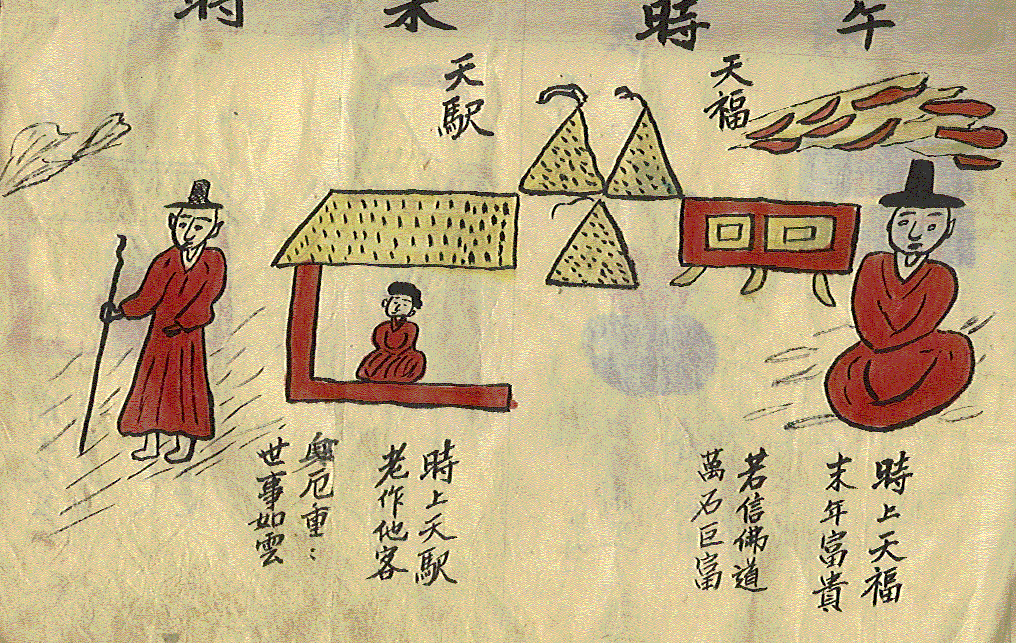 午時
天福
時上天福
末年富貴
若信佛道
萬石巨富
未時
天駅
時上天駅
老作他客
厄重：
世事如雲